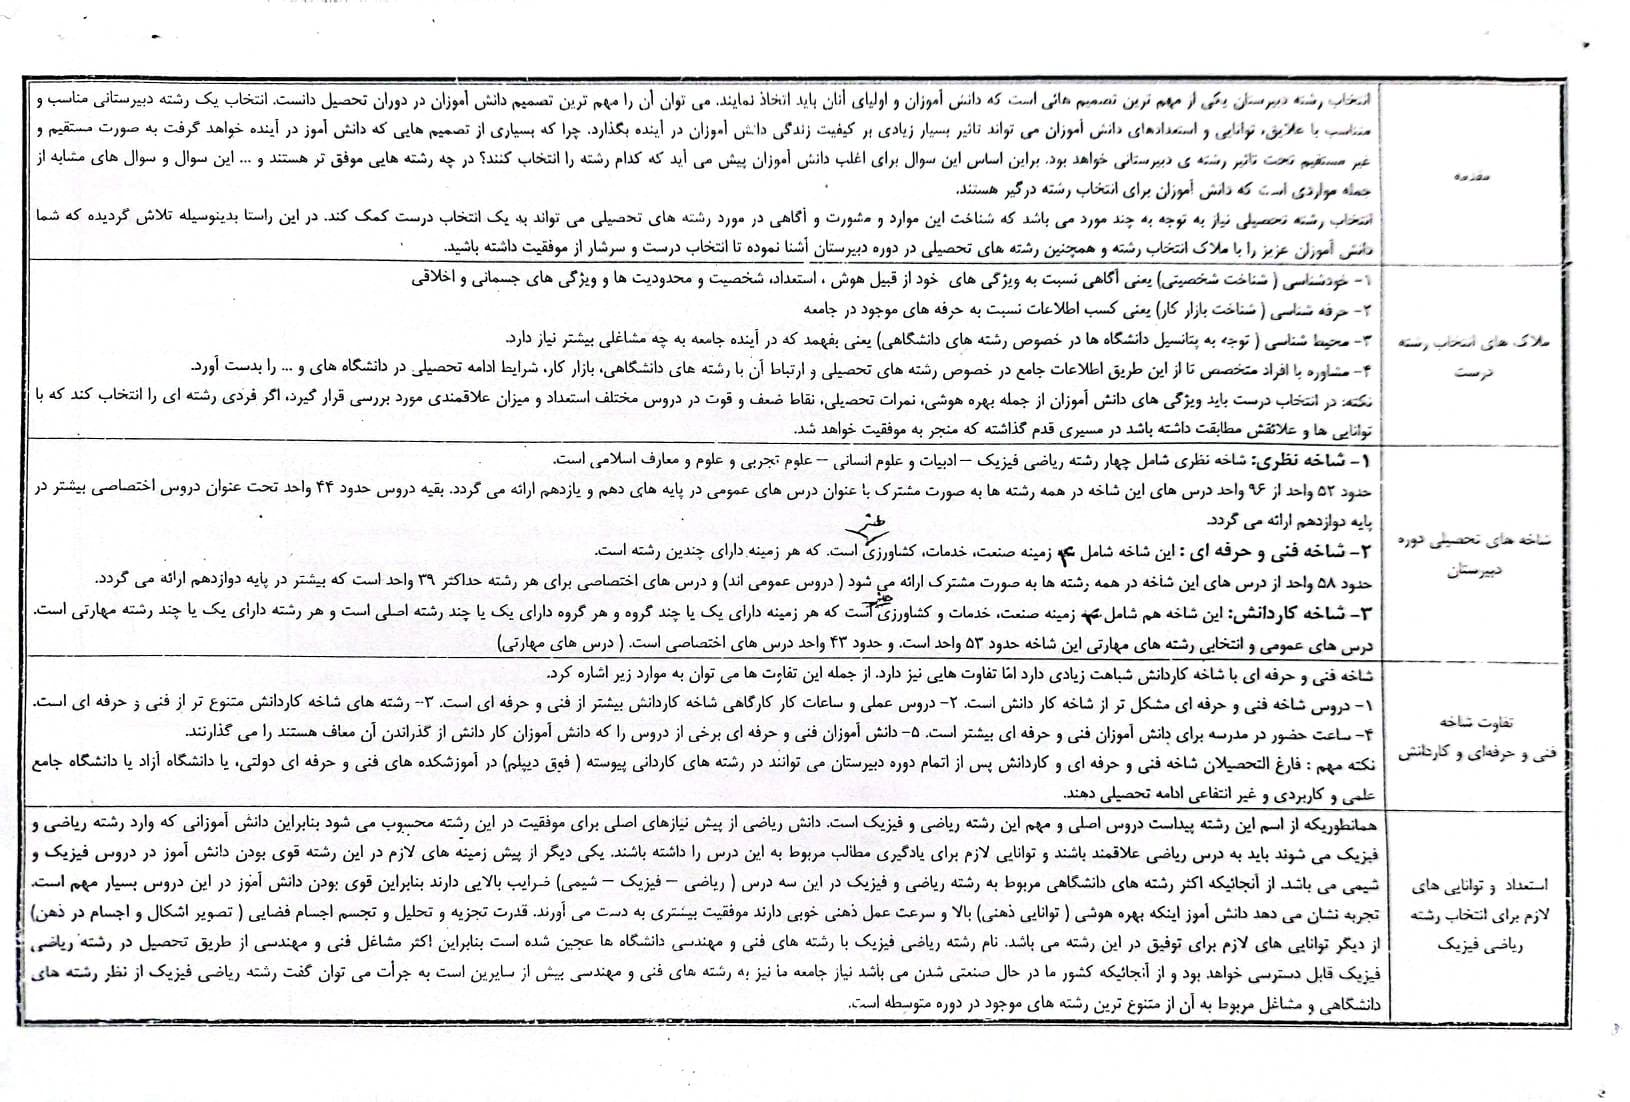 مقدمه
انتخاب رشته دبیرستان یکی از مهم ترین تصمیم هائی است که دانش آموزان و اولیای آنان باید اتخاذ نمایند. می توان آن را مهم ترین تصمیم دانش آموزان در دوران تحصیل دانست. انتخاب یک رشته دبیرستانی مناسب و
متناسب با علایق، توانایی و استعدادهای دانش آموزان می تواند تاثیر بسیار زیادی بر کیفیت زندگی دانش آموزان در آینده بگذارد. چرا که بسیاری از تصمیم هایی که دانش آموز در آینده خواهد گرفت به صورت مستقیم و
غیر مستقیم تحت تاثیر رشته ی دبیرستانی خواهد بود. براین اساس این سوال برای اغلب دانش آموزان پیش می آید که کدام رشته را انتخاب کنند؟ در چه رشته هایی موفق تر هستند و ... این سوال و سوال های مشابه از
جمله مواردی است که دانش آموزان برای انتخاب رشته درگیر هستند.
انتخاب رشته تحصیلی نیاز به توجه به چند مورد می باشد که شناخت این موارد و مشورت و آگاهی در مورد رشته های تحصیلی می تواند به یک انتخاب درست کمک کند. در این راستا بدینوسیله تلاش گردیده که شما
دانش آموزان عزیز را با ملاک انتخاب رشته و همچنین رشته های تحصیلی در دوره دبیرستان آشنا نموده تا انتخاب درست و سرشار از موفقیت داشته باشید.
ملاک های انتخاب رشته
درست
۱- خودشناسی ( شناخت شخصیتی) یعنی آگاهی نسبت به ویژگی های خود از قبیل هوش ، استعداد، شخصیت و محدودیت ها و ویژگی های جسمانی و اخلاقی
۲- حرفه شناسی ( شناخت بازار کار) یعنی کسب اطلاعات نسبت به حرفه های موجود در جامعه
۳- محیط شناسی ( توجه به پتانسیل دانشگاه ها در خصوص رشته های دانشگاهی) یعنی بفهمد که در آینده جامعه به چه مشاغلی بیشتر نیاز دارد.
۴- مشاوره با افراد متخصص تا از این طریق اطلاعات جامع در خصوص رشته های تحصیلی و ارتباط آن با رشته های دانشگاهی، بازار کار، شرایط ادامه تحصیلی در دانشگاه های و ... را بدست آورد.
نکته: در انتخاب درست باید ویژگی های دانش آموزان از جمله بهره هوشی، نمرات تحصیلی، نقاط ضعف و قوت در دروس مختلف استعداد و میزان علاقمندی مورد بررسی قرار گیرد، اگر فردی رشته ای را انتخاب کند که با
توانایی ها و علائقش مطابقت داشته باشد در مسیری قدم گذاشته که منجر به موفقیت خواهد شد.
شاخه های تحصیلی دوره
دبیرستان
۱- شاخه نظری: شاخه نظری شامل چهار رشته ریاضی فیزیک – ادبیات و علوم انسانی – علوم تجربی و علوم و معارف اسلامی است.
حدود ۵۲ واحد از ۹۶ واحد درس های این شاخه در همه رشته ها به صورت مشترک با عنوان درس های عمومی در پایه های دهم و یازدهم ارائه می گردد. بقیه دروس حدود ۴۴ واحد تحت عنوان دروس اختصاصی بیشتر در
پایه دوازدهم ارائه می گردد.
هنر
۲- شاخه فنی و حرفه ای : این شاخه شامل ۴ زمینه صنعت، خدمات، کشاورزی است. که هر زمینه دارای چندین رشته است.
حدود ۵۸ واحد از درس های این شاخه در همه رشته ها به صورت مشترک ارائه می شود ( دروس عمومی اند) و درس های اختصاصی برای هر رشته حداکثر ۳۹ واحد است که بیشتر در پایه دوازدهم ارائه می گردد.
هنر
۳- شاخه کاردانش: این شاخه هم شامل ۴ زمینه صنعت، خدمات و کشاورزی است که هر زمینه دارای یک یا چند گروه و هر گروه دارای یک یا چند رشته اصلی است و هر رشته دارای یک یا چند رشته مهارتی است.
درس های عمومی و انتخابی رشته های مهارتی این شاخه حدود ۵۳ واحد است. و حدود ۴۳ واحد درس های اختصاصی است. ( درس های مهارتی)
تفاوت شاخه
فنی و حرفه‌ای و کاردانش
شاخه فنی و حرفه ای با شاخه کاردانش شباهت زیادی دارد امّا تفاوت هایی نیز دارد. از جمله این تفاوت ها می توان به موارد زیر اشاره کرد.
۱- دروس شاخه فنی و حرفه ای مشکل تر از شاخه کار دانش است. ۲- دروس عملی و ساعات کار کارگاهی شاخه کاردانش بیشتر از فنی و حرفه ای است. ۳- رشته های شاخه کاردانش متنوع تر از فنی و حرفه ای است.
۴- ساعت حضور در مدرسه برای دانش آموزان فنی و حرفه ای بیشتر است. ۵- دانش آموزان فنی و حرفه ای برخی از دروس را که دانش آموزان کار دانش از گذراندن آن معاف هستند را می گذارنند.
نکته مهم : فارغ التحصیلان شاخه فنی و حرفه ای و کاردانش پس از اتمام دوره دبیرستان می توانند در رشته های کاردانی پیوسته ( فوق دیپلم) در آموزشکده های فنی و حرفه ای دولتی، یا دانشگاه آزاد یا دانشگاه جامع
علمی و کاربردی و غیر انتفاعی ادامه تحصیلی دهند.
استعداد و توانایی های
لازم برای انتخاب رشته
ریاضی فیزیک
همانطوریکه از اسم این رشته پیداست دروس اصلی و مهم این رشته ریاضی و فیزیک است. دانش ریاضی از پیش نیازهای اصلی برای موفقیت در این رشته محسوب می شود بنابراین دانش آموزانی که وارد رشته ریاضی و
فیزیک می شوند باید به درس ریاضی علاقمند باشند و توانایی لازم برای یادگیری مطالب مربوط به این درس را داشته باشند. یکی دیگر از پیش زمینه های لازم در این رشته قوی بودن دانش آموز در دروس فیزیک و
شیمی می باشد. از آنجائیکه اکثر رشته های دانشگاهی مربوط به رشته ریاضی و فیزیک در این سه درس ( ریاضی – فیزیک – شیمی) ضرایب بالایی دارند بنابراین قوی بودن دانش آموز در این دروس بسیار مهم است.
تجربه نشان می دهد دانش آموز اینکه بهره هوشی ( توانایی ذهنی) بالا و سرعت عمل ذهنی خوبی دارند موفقیت بیشتری به دست می آورند. قدرت تجزیه و تحلیل و تجسم اجسام فضایی ( تصویر اشکال و اجسام در ذهن)
از دیگر توانایی های لازم برای توفیق در این رشته می باشد. نام رشته ریاضی فیزیک با رشته های فنی و مهندسی دانشگاه ها عجین شده است بنابراین اکثر مشاغل فنی و مهندسی از طریق تحصیل در رشته ریاضی
فیزیک قابل دسترسی خواهد بود و از آنجائیکه کشور ما در حال صنعتی شدن می باشد نیاز جامعه ما نیز به رشته های فنی و مهندسی بیش از سایرین است به جرأت می توان گفت رشته ریاضی فیزیک از نظر رشته های
دانشگاهی و مشاغل مربوط به آن از متنوع ترین رشته های موجود در دوره متوسطه است.